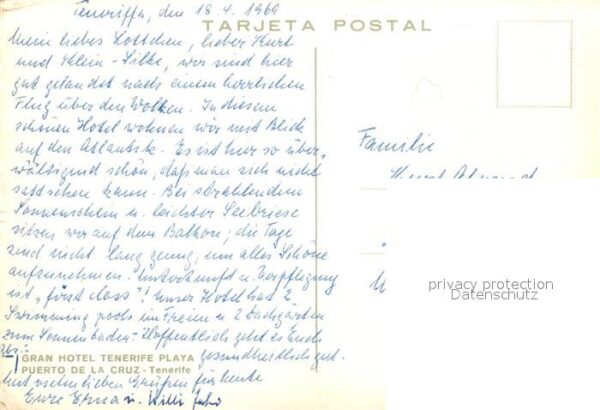 Teneriffa, den 18.4.1969
TARJETA POSTAL
Mein liebes Lottchen, lieber Kurt
und Klein-Silke, wir sind hier
gut gelandet nach einem herrlichen
Flug über den Wolken. In diesem
schönen Hotel wohnen wir mit Blick
auf den Atlantik. Es ist hier so über-
wältigend schön, daß man sich nicht
satt sehen kann. Bei strahlendem
Sonnenschein u. leichter Seebriese
sitzen wir auf dem Balkon; die Tage
sind nicht lang genug, um alles Schöne
aufzunehmen. Unterkunft u. Verpflegung
ist „first class"! Unser Hotel hat 2
Swimming pools im Freien u. 2 Dachgärten
zum Sonnenbaden. Hoffentlich geht es Euch
gesundheitlich gut.
Abs.:
GRAN HOTEL TENERIFE PLAYA
PUERTO DE LA CRUZ - Tenerife
Mit vielen lieben Grüßen für heute
Eure Erna u. Willi
Familie
Kurt
privacy protection
Datenschutz